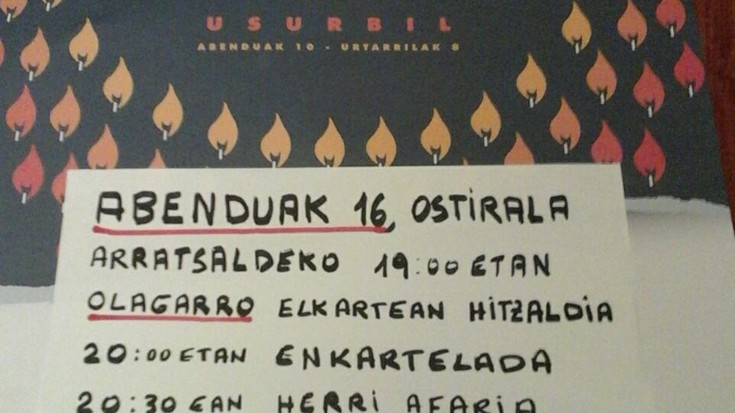 USURBIL
ABENDUAK 10 - URTARRILAK 8
ABENDUAK 16, OSTIRALA
ARRATSALDEKO 19:00 ETAN
OLAGARRO ELKARTEAN HITZALDIA
20:00 ETAN ENKARTELADA
20:30 EAN HERRI AFARIA